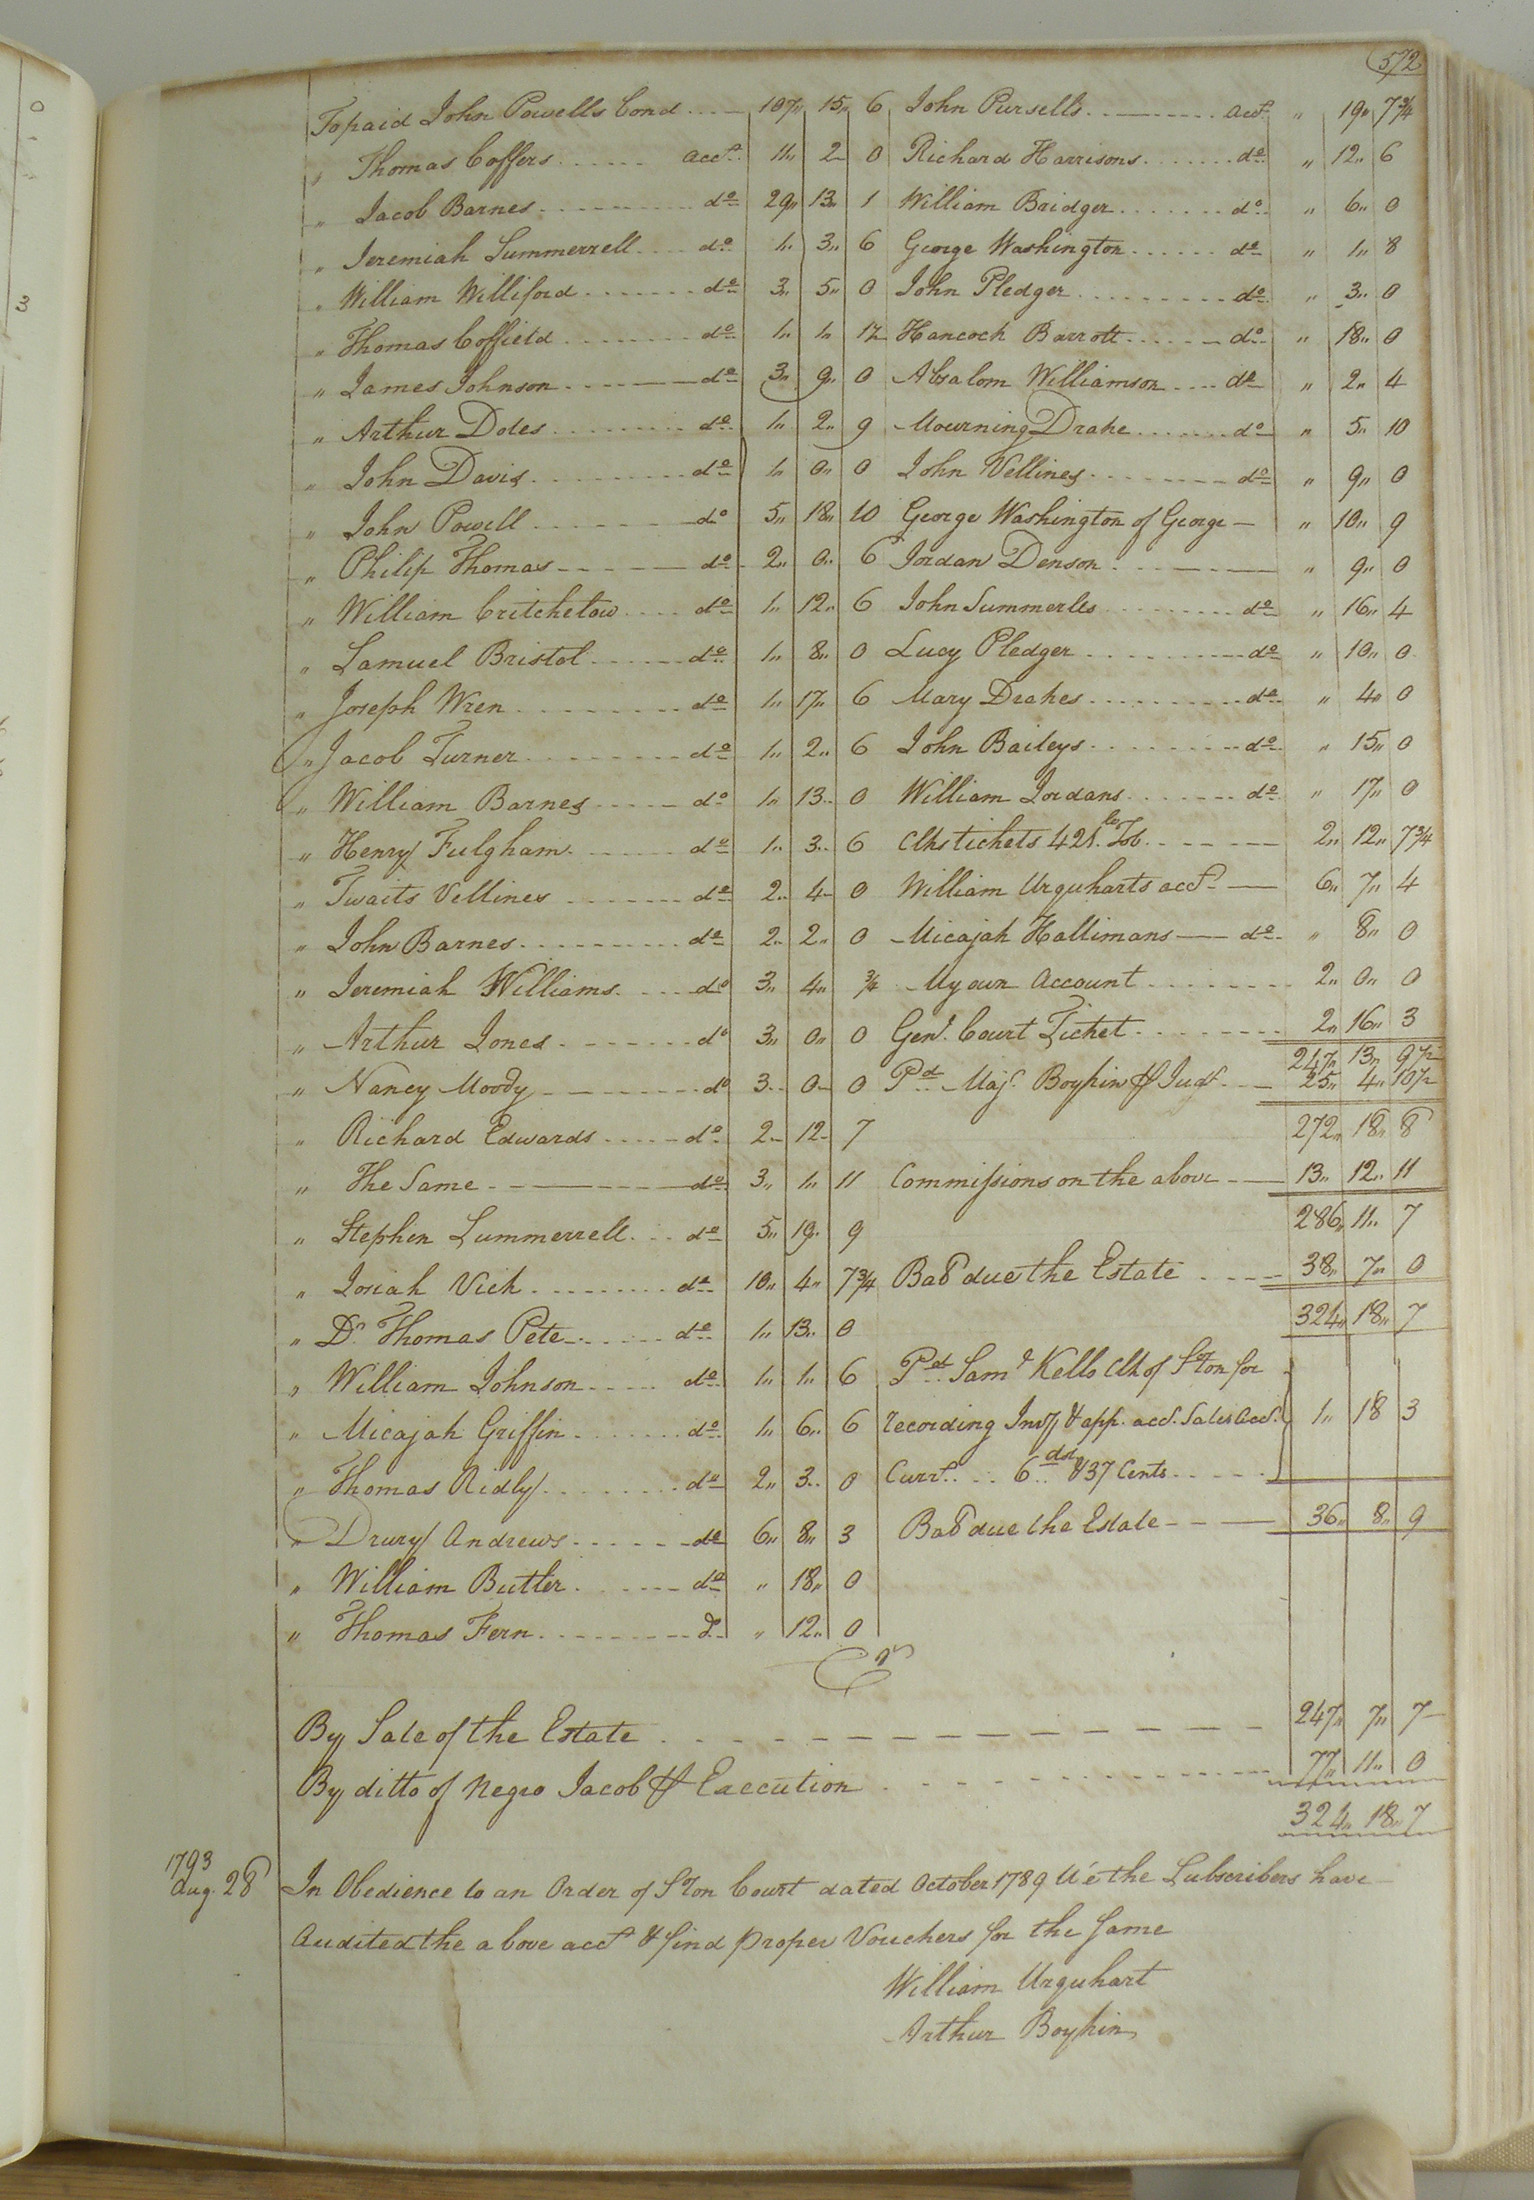 572
To paid John Powells bond .... 107,, 15,, 6 John Pursells ........ acct. ,, 19,, 7 3/4
,, Thomas Coffers ...... acct. 11,, 2 0 Richard Harrisons ....... do ,, 12,, 6
,, Jacob Barnes ........ do 29,, 13,, 1 William Bridger ....... do ,, 6,, 0
,, Jeremiah Summerrell ... do 1,, 3,, 6 George Washington ...... do ,, 1,, 8
,, William Williford ....... do 3,, 5,, 0 John Pledger ......... do ,, 3,, 0
,, Thomas Coffield ....... do 1,, 1,, 1 1/2 Hancock Barrott ...... do ,, 18,, 0
,, James Johnson ........ do 3,, 9,, 0 Absalom Williamson .... do ,, 2,, 4
,, Arthur Doles ......... do 1,, 2,, 9 Mourning Drake ....... do ,, 5,, 10
,, John Davis .......... do 1,, 0,, 0 John Vellines ......... do ,, 9,, 0
,, John Powell ......... do 5,, 18,, 10 George Washington of George — ,, 10,, 9
,, Philip Thomas ....... do 2,, 0,, 6 Jordan Denson ........ ,, 9,, 0
,, William Critchelow .... do 1,, 12,, 6 John Summerles ........ do ,, 16,, 4
,, Samuel Bristol ...... do 1,, 8,, 0 Lucy Pledger ......... do ,, 10,, 0
,, Joseph Wren ......... do 1,, 17,, 6 Mary Drakes .......... do ,, 4,, 0
,, Jacob Turner ........ do 1,, 2,, 6 John Baileys ......... do ,, 15,, 0
,, William Barnes ...... do 1,, 13,, 0 William Jordans ....... do ,, 17,, 0
,, Henry Fulgham ....... do 1,, 3,, 6 Clks tickets 421 lb. Tob. ...... 2,, 12,, 7 3/4
,, Twaits Vellines ....... do 2,, 4 0 William Urquharts acct — 6,, 7,, 4
,, John Barnes .......... do 2,, 2,, 0 Micajah Hallimans — do ,, 8,, 0
,, Jeremiah Williams .... do 3,, 4,, 3/4 My own Account ........ 2,, 0,, 0
,, Arthur Jones ....... do 3,, 0,, 0 Genl. Court Ticket ........ 2,, 16,, 3
247,, 13,, 9 1/2
,, Nancy Moody ........ do 3,, 0 0 Pd. Majr. Boykin p Judgt. .... 25,, 4,, 10 1/2
,, Richard Edwards ..... do 2 12 7 272,, 18,, 8
,, The Same ........ do 3,, 1,, 11 Commissions on the above — 13,, 12,, 11
,, Stephen Summerrell ... do 5,, 19,, 9 286,, 11,, 7
,, Josiah Vick ......... do 10,, 4,, 7 3/4 Bal due the Estate .... 38,, 7,, 0
,, Dr. Thomas Pete ...... do 1,, 13,, 0 324,, 18,, 7
,, William Johnson ..... do 1,, 1,, 6 Pd. Saml. Kello Clk of S'ton for
,, Micajah Griffin ....... do 1,, 6,, 6 recording Invy & app. acct. Sales Acct. 1,, 18 3
,, Thomas Ridly ........ do 2,, 3,, 0 Currt. ... 6 dolr. & 37 Cents .....
,, Drury Andrews ...... do 6,, 8,, 3 Bal due the Estate — 36,, 8,, 9
,, William Butler ...... do ,, 18,, 0
,, Thomas Fern ........ do ,, 12,, 0
Cr
By Sale of the Estate ........ 247,, 7,, 7
By ditto of Negro Jacob p Execution ........ 77,, 11,, 0
324,, 18,, 7
1793
Aug. 28 In Obedience to an Order of S'ton Court dated October 1789 We the Subscribers have
Audited the above acct & find proper Vouchers for the Same
William Urquhart
Arthur Boykin
0
3